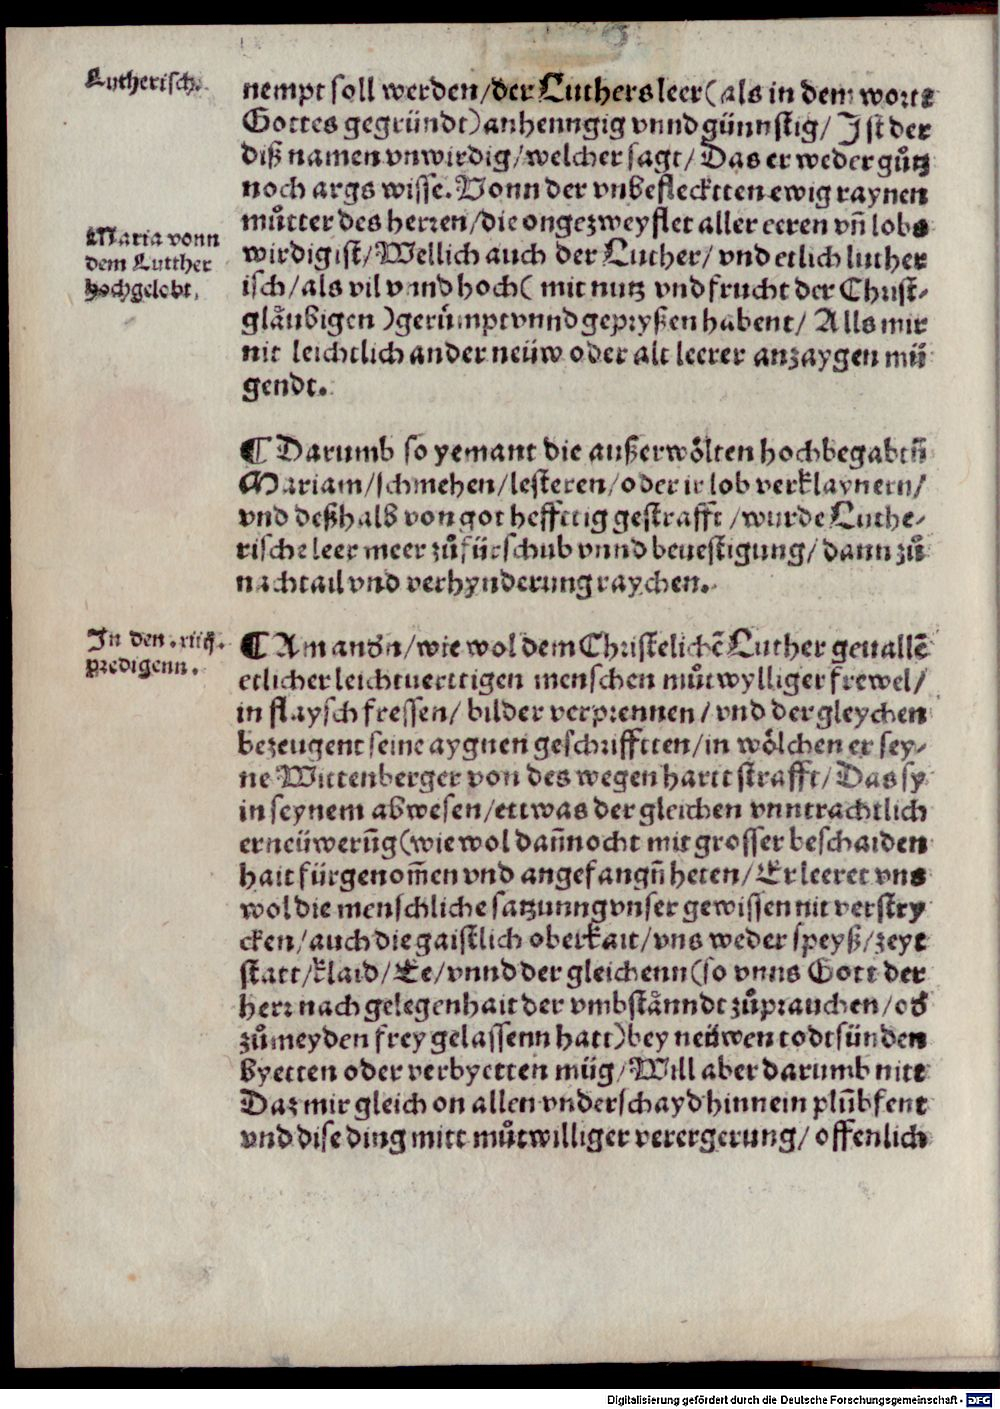 Lutherisch.
nempt soll werden/der Luthers leer(als in dem worte
Gottes gegründt)anhenngig vnnd günnstig/ Ist der
diß namen vnwirdig/welcher sagt/ Das er weder gůtz
noch args wisse. Vonn der vnbeflecktten ewig raynen
můtter des herren/die ongezweyflet aller eeren vn̄ lobs
Maria vonn
dem Lutther
hochgelobt.
wirdig ist/Wellich auch der Luther/ vnd etlich luther
isch/als vil vnnd hoch( mit nutz vnd frucht der Christ-
glåubigen )gerůmpt vnnd gepryßen habent/ Alls mir
nit leichtlich ander neüw oder alt leerer anzaygen mü
gendt.
¶ Darumb so yemant die außerwölten hochbegabtn̄
Mariam/schmehen/lesteren/oder ir lob verklaynern/
vnd deßhalb von got heffttig gestrafft /wurde Luthe-
rische leer meer zů fürschub vnnd beuestigung/ dann zů
nachtail vnd verhynderung raychen.
In den .viij.
predigenn.
¶ Am andn/wie wol dem Christelichē Luther geuallē
etlicher leichtuerttigen menschen můtwylliger frewel/
in flaysch fressen/ bilder verprennen/ vnd der gleychen
bezeugent seine aygnen geschrifftten/in wölchen er sey-
ne Wittenberger von des wegen hartt strafft/ Das sy
in seynem abwesen/ettwas der gleichen vnntrachtlich
erneüwerun̄g(wie wol dan̄nocht mit grosser beschaiden
hait fürgenom̄en vnd angefangn̄ heten/ Er leeret vns
wol die menschliche satzunng vnser gewissen nit verstry
cken/auch die gaistlich oberkait/vns weder speyß/zeyt
statt/klaid/Ee/vnnd der gleichenn(so vnns Gott der
herr nach gelegenhait der vmbstånndt zů prauchen/od
zů meyden frey gelassenn hatt)bey neüwen todtsünden
byetten oder verbyetten müg/Will aber darumb nitt
Daz mir gleich on allen vnderschayd hinnein plūbsent
vnd dise ding mitt můtwilliger verergerung/ offenlich
Digitalisierung gefördert durch die Deutsche Forschungsgemeinschaft - DFG